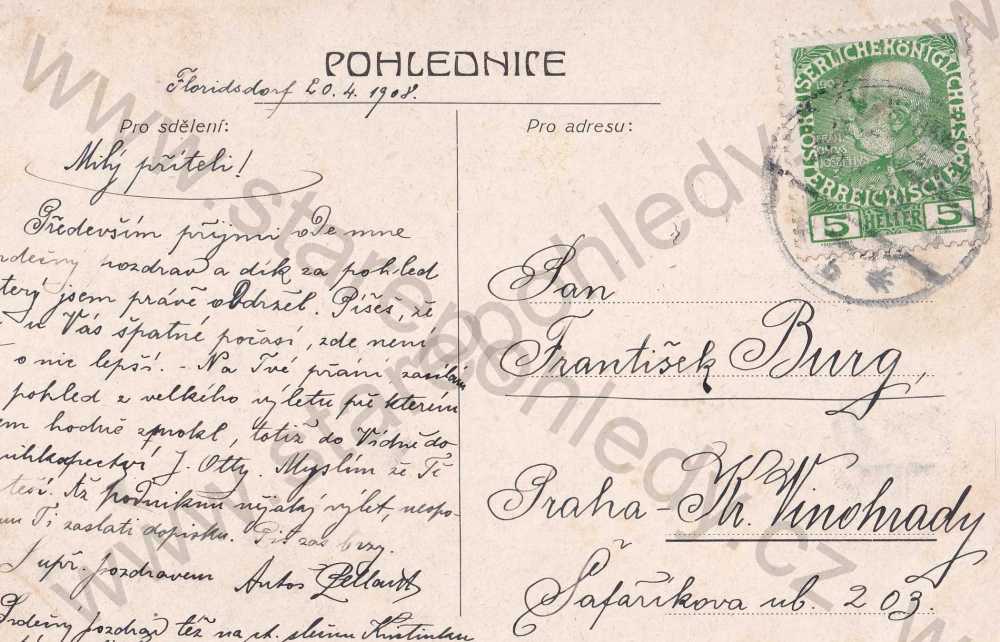 POHLEDNICE
Floridsdorf 20.4.1908.
Pro sdělení:
Milý příteli!
Především přijmi ode mne
rdečný pozdrav a dík za pohled
terý jsem právě obdržel. Píšeš, že
u Vás špatné počasí, zde není
o nic lepší. - Na Tvé přání zasílám
pohled z velkého výletu při kterém
em hodně zmokl, totiž do Vídně do
nihkupectví J. Otty. Myslím že Tě
těší. Až podniknu nějaký výlet, neopo-
nu Ti zaslati dopisku. Piš zas brzy.
S upř. pozdravem Antoš
Srdečný pozdrav též na ct. slečnu Kristinku
Pro adresu:
Pan
František Burg,
Praha-Kr. Vinohrady
Šafaříkova ul. 203.
KAISERLICHEKÖNIGLICHE
ÖSTERREICHISCHE POST
FRANZ
JOSEF I
5 HELLER 5
www.starepohledy.cz
www.starepohledy.cz